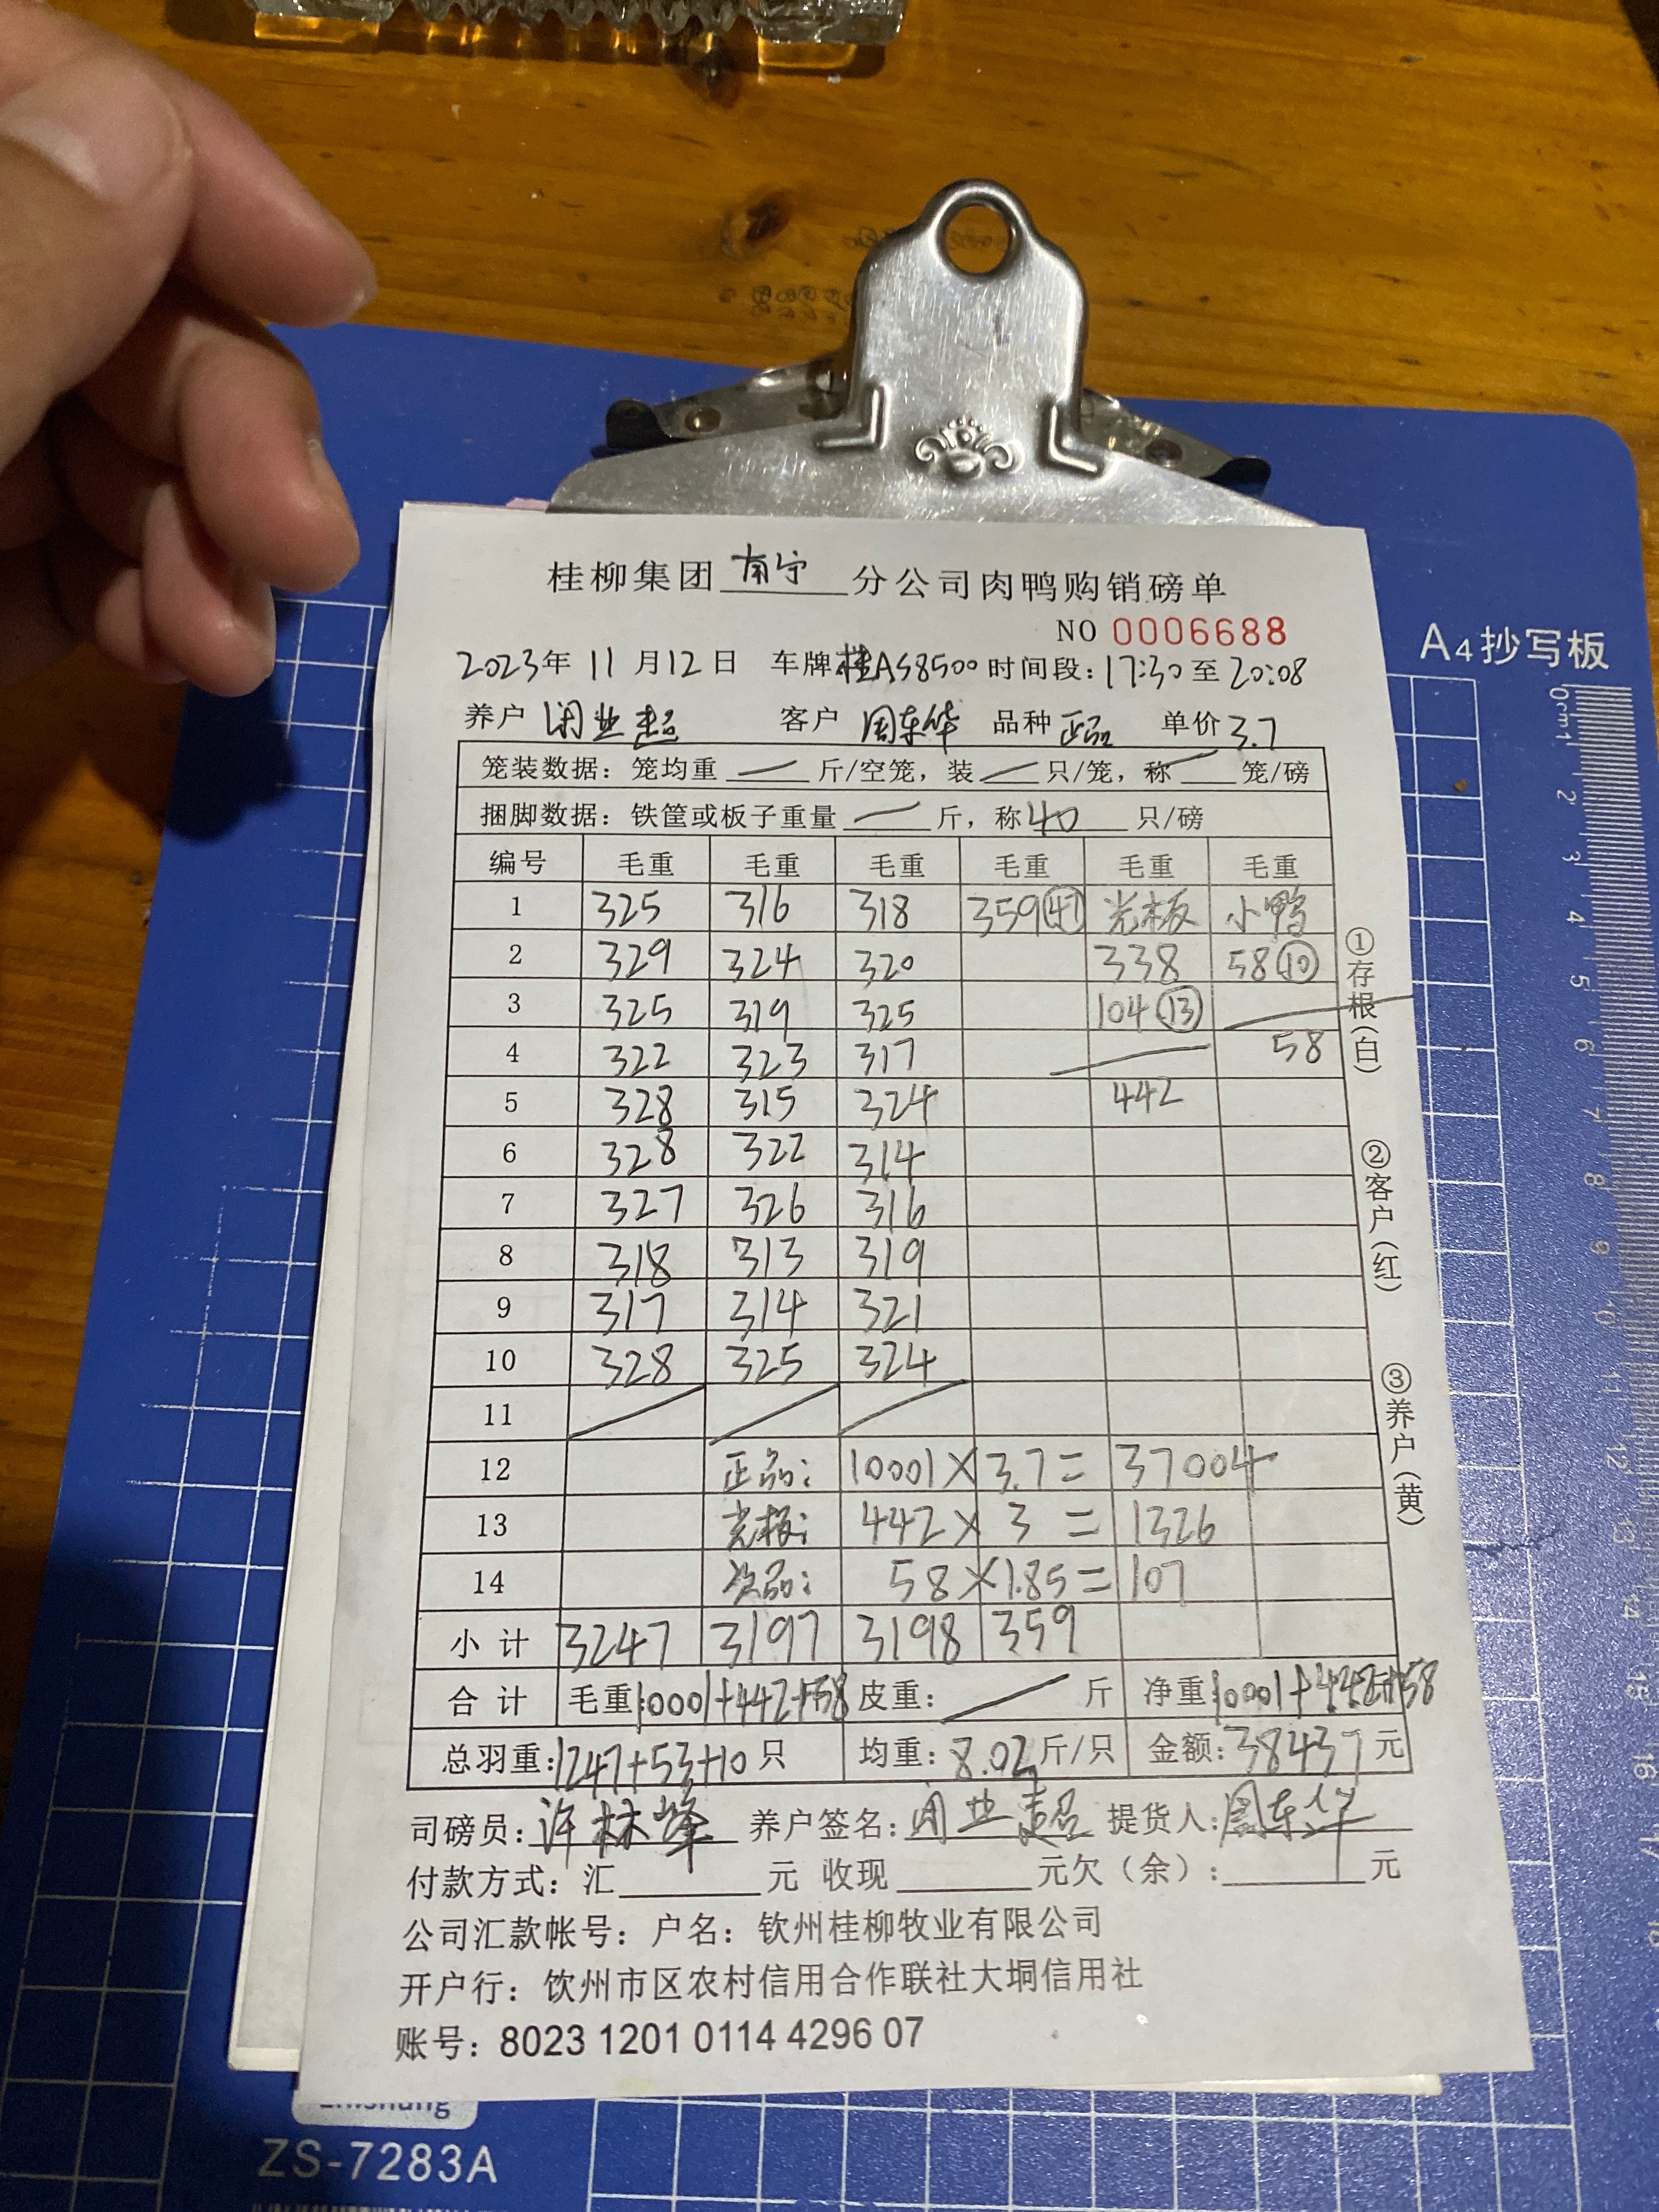 桂柳集团 南宁 分公司肉鸭购销磅单
NO 0006688
2023年 11 月 12 日 车牌 桂AS8500 时间段: 17:30 至 20:08
养户 闭业超 客户 周东华 品种 正品 单价 3.7
笼装数据: 笼均重 — 斤/空笼, 装 — 只/笼, 称 — 笼/磅
捆脚数据: 铁筐或板子重量 — 斤, 称 40 只/磅
编号 毛重 毛重 毛重 毛重 毛重 毛重
1 325 316 318 359 ㊼ 光板 小鸭
2 329 324 320 338 58 ⑩
3 325 319 325 104 ⑬
4 322 323 317 58
5 328 315 324 442
6 328 322 314
7 327 326 316
8 318 313 319
9 317 314 321
10 328 325 324
11
12 正品: 10001 × 3.7 = 37004
13 光板: 442 × 3 = 1326
14 次品: 58 × 1.85 = 107
小计 3247 3197 3198 359
合计 毛重: 10001+442+58 皮重: — 斤 净重: 10001+442+58
总羽重: 1247+53+10 只 均重: 8.02 斤/只 金额: 38437 元
司磅员: 许林峰 养户签名: 闭业超 提货人: 周东华
付款方式: 汇 元 收现 元欠(余): 元
公司汇款帐号: 户名: 钦州桂柳牧业有限公司
开户行: 饮州市区农村信用合作联社大垌信用社
账号: 8023 1201 0114 4296 07
①存根(白)
②客户(红)
③养户(黄)
A4抄写板
0cm1 2 3 4 5 6 7 8 9 10 11 12 13 14 15 16 17 18
ZS-7283A